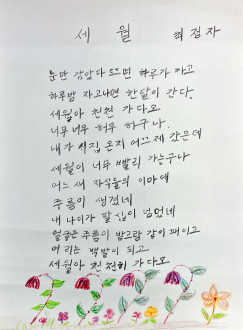 세 월 허정자
눈만 감았다 뜨면 하루가 가고
하루밤 자고나면 한달이 간다.
세월아 천천 가다오
너무너무 허무 하구나.
내가 시집 온지 어끄제 갔은데
세월이 너무 빨리 가는구나
어느새 자식들의 이마에
주름이 생겼네
내 나이가 팔십이 넘었네
얼굴은 주름이 밤고랑 같이 패이고
머리는 백발이 되고
세월아 천천히 가다오